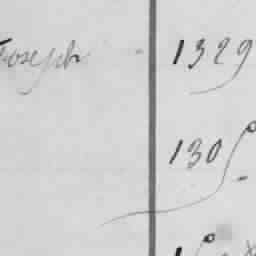 Joseph 1329
130